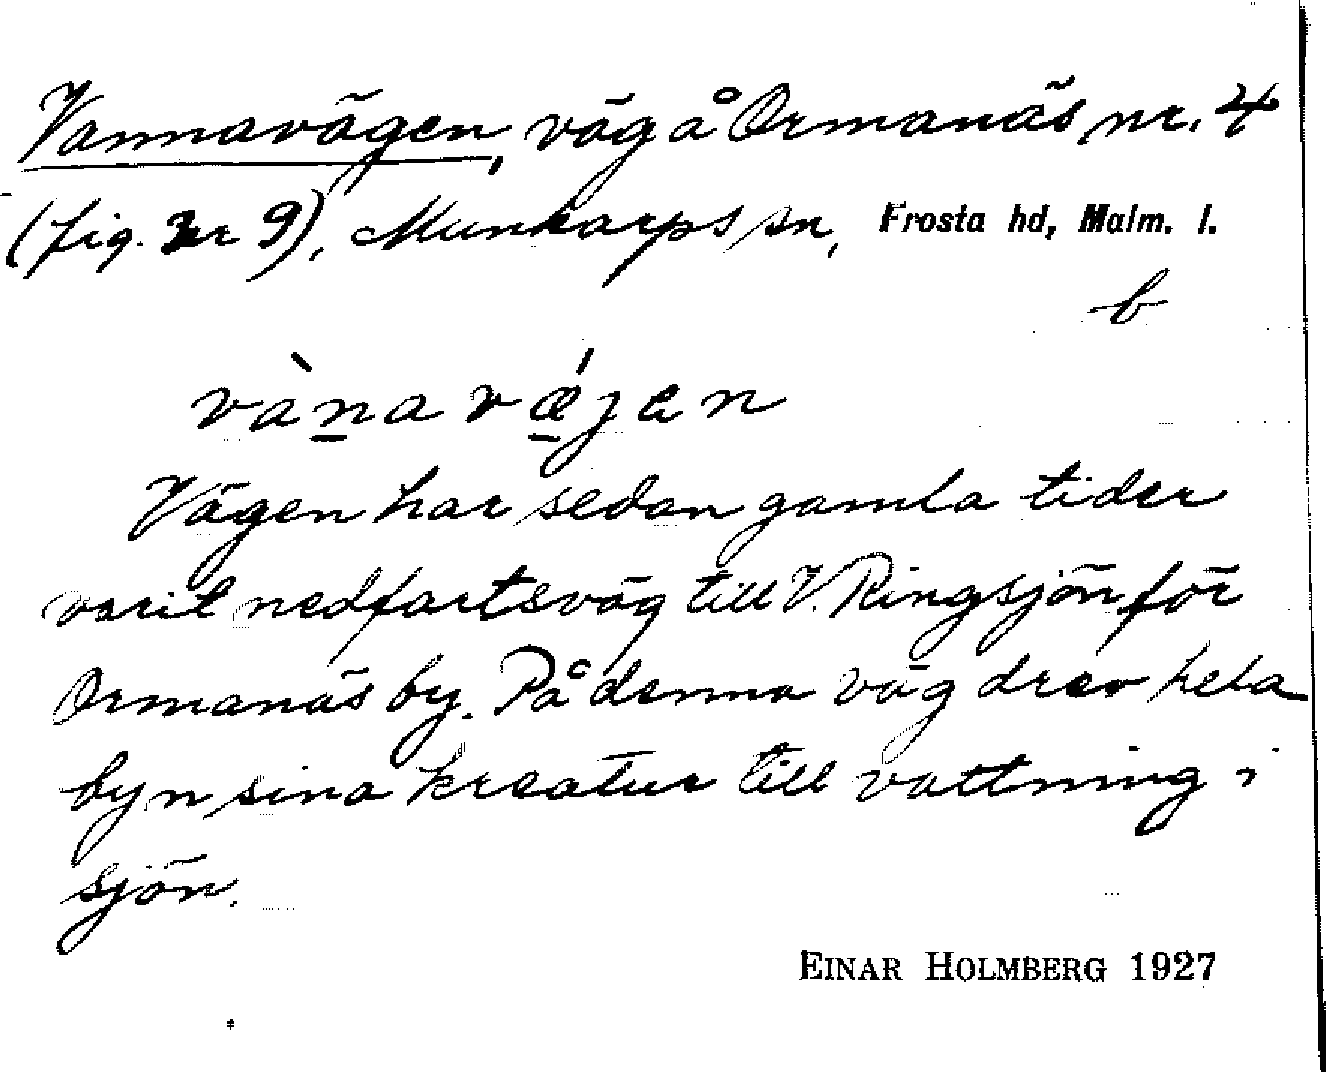 Vannavägen, väg å Ormanäs nr. 4
(fig. nr 9), Munkarps sn, Frosta hd, Malm. l.
b
vàna vǽjen
Vägen har sedan gamla tider
varit nedfartsväg till V. Ringsjön för
Ormanäs by. På denna väg drev hela
byn sina kreatur till vattning i
sjön.
EINAR HOLMBERG 1927